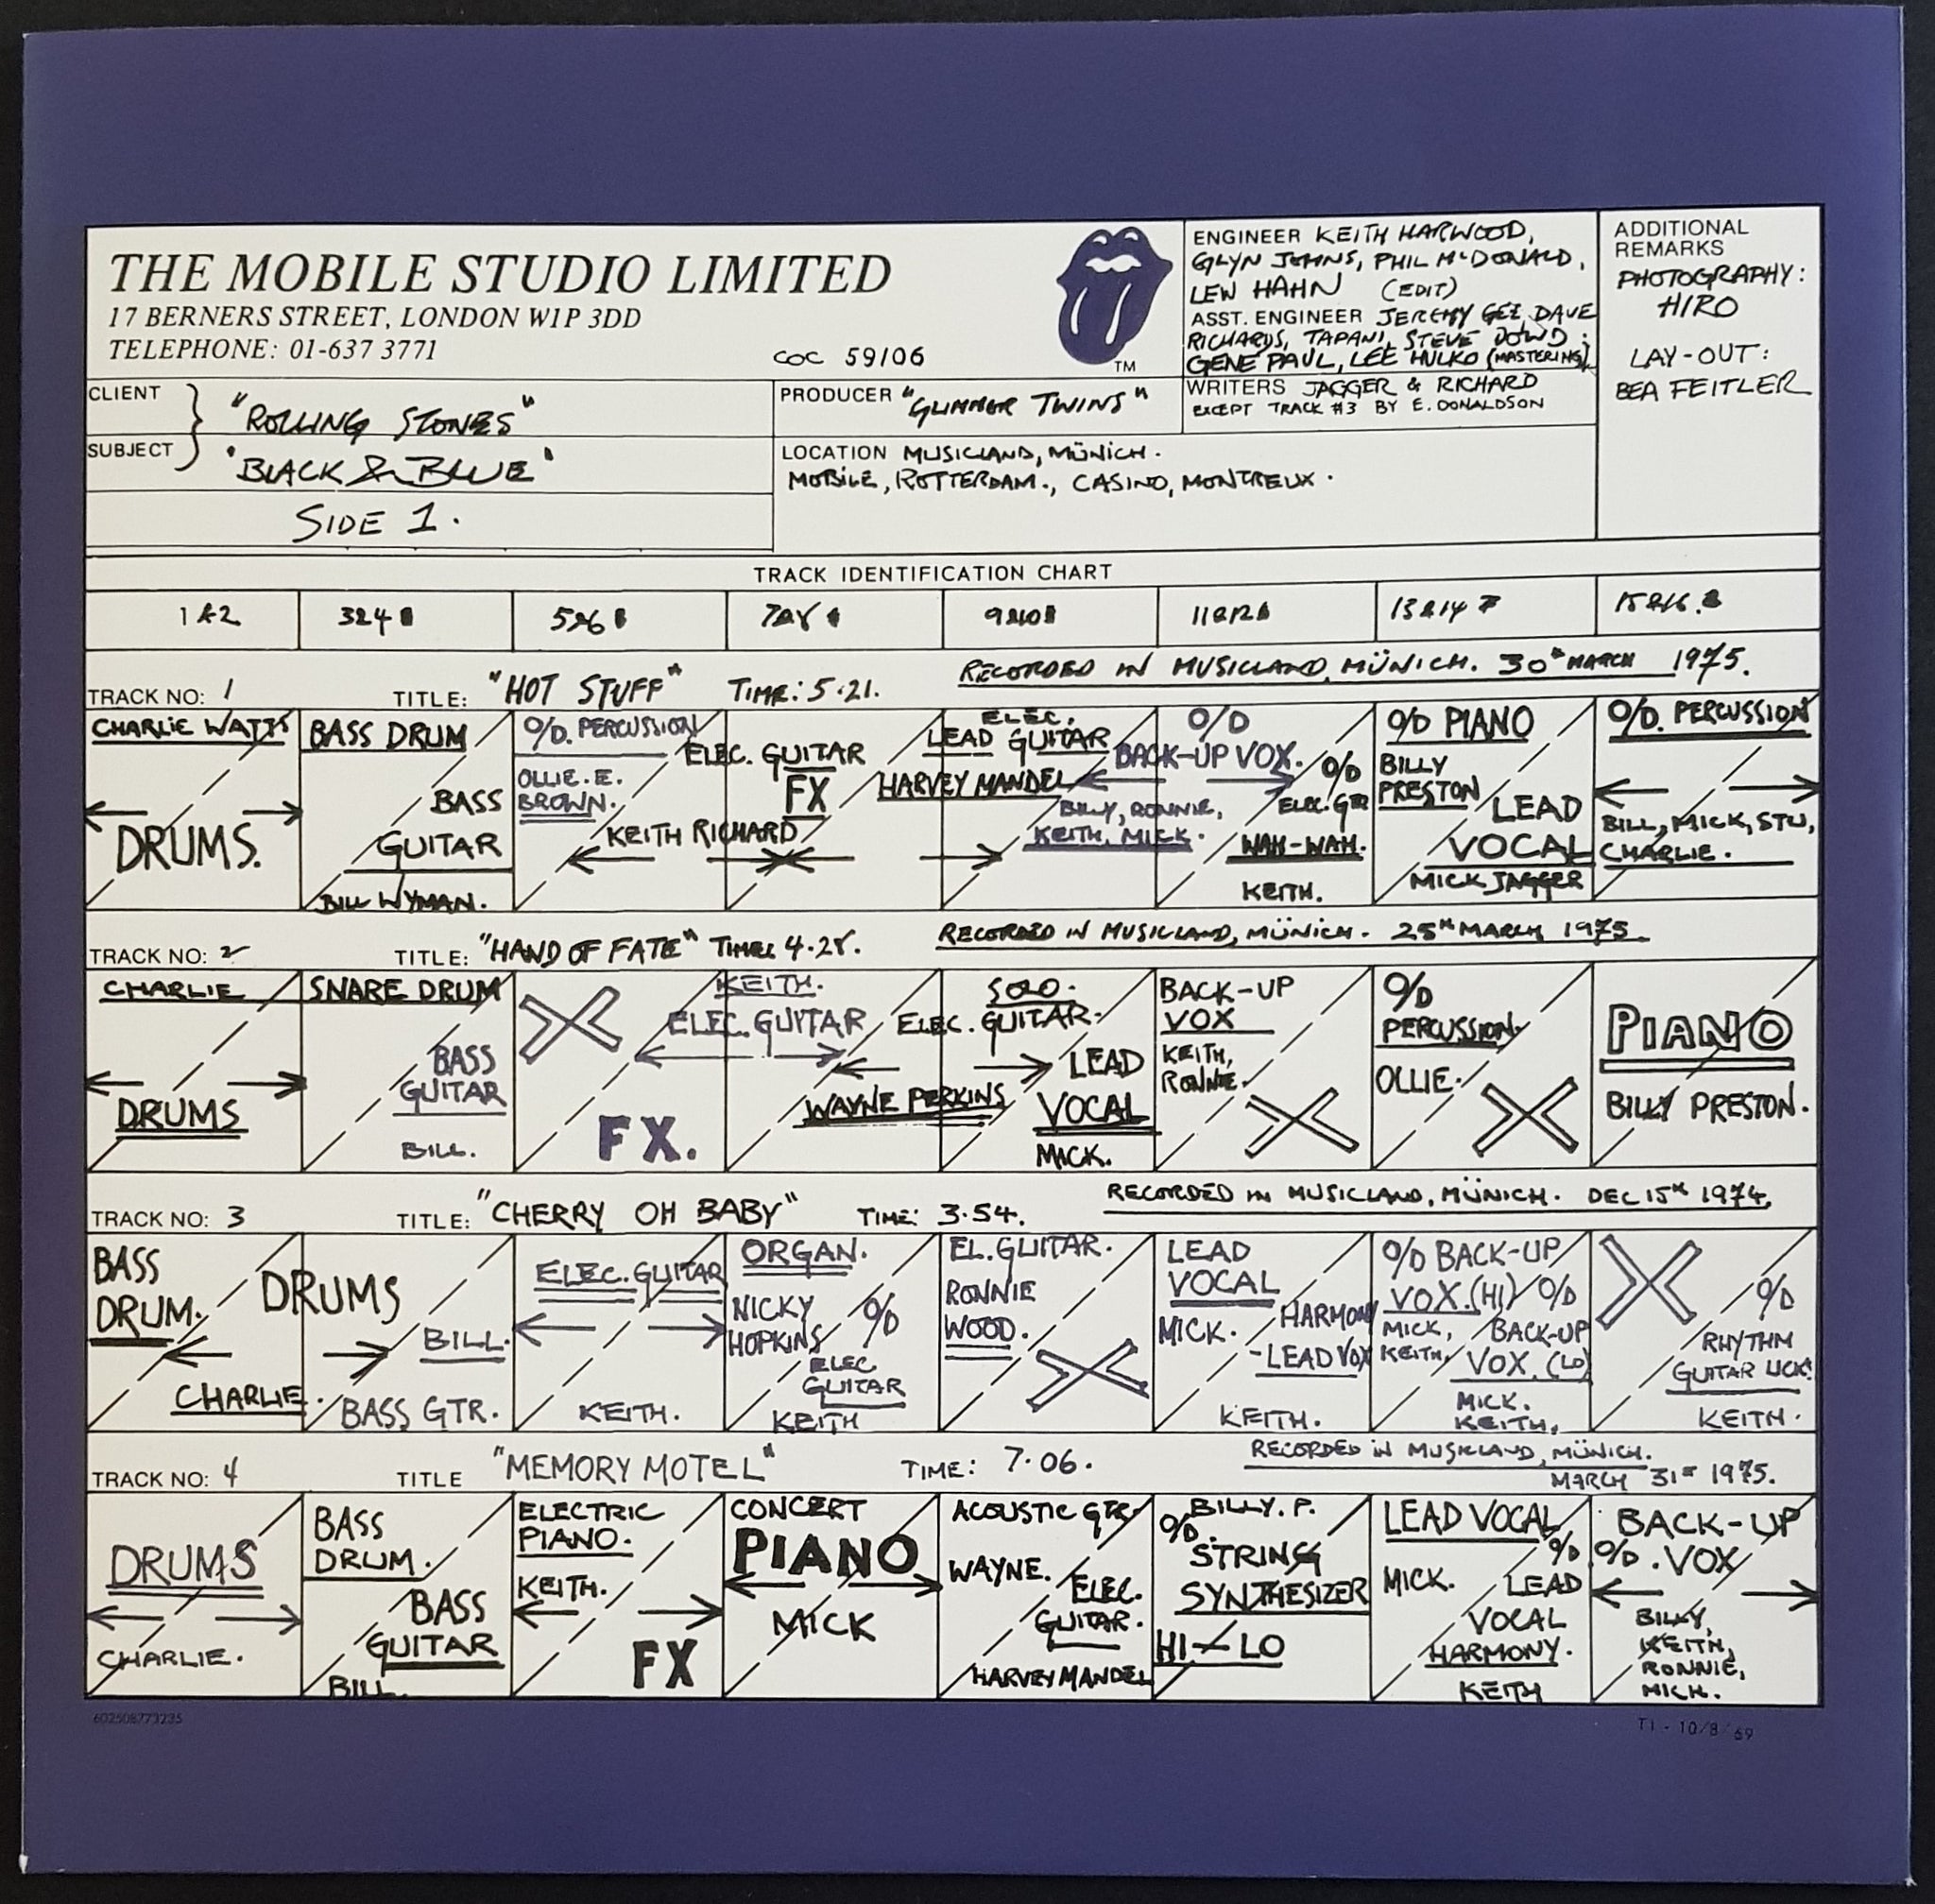 THE MOBILE STUDIO LIMITED
17 BERNERS STREET, LONDON W1P 3DD
TELEPHONE: 01-637 3771
COC 59106
TM
ENGINEER KEITH HARWOOD,
GLYN JOHNS, PHIL McDONALD,
LEW HAHN (EDIT)
ASST. ENGINEER JEREMY GEE DAVE
RICHARDS, TAPANI, STEVE DOWD;
GENE PAUL, LEE HULKO (MASTERING)
WRITERS JAGGER & RICHARD
EXCEPT TRACK #3 BY E. DONALDSON
ADDITIONAL
REMARKS
PHOTOGRAPHY:
HIRO
LAY-OUT:
BEA FEITLER
CLIENT
"ROLLING STONES"
SUBJECT
'BLACK & BLUE'
SIDE 1.
PRODUCER "GLIMMER TWINS"
LOCATION MUSICLAND, MÜNICH.
MOBILE, ROTTERDAM., CASINO, MONTREUX.
TRACK IDENTIFICATION CHART
1 & 2
3 & 4
5 & 6
7 & 8
9 & 10
11 & 12
13 & 14
15 & 16.
TRACK NO: 1 TITLE: "HOT STUFF" TIME: 5.21. RECORDED IN MUSICLAND, MÜNICH. 30th MARCH 1975.
CHARLIE WATTS
DRUMS.
BASS DRUM
BASS
GUITAR
BILL WYMAN.
O/D. PERCUSSION
OLLIE. E.
BROWN.
ELEC. GUITAR
FX
KEITH RICHARD
ELEC.
LEAD GUITAR
HARVEY MANDEL
O/D
BACK-UP VOX.
BILLY, RONNIE,
KEITH, MICK.
O/D
ELEC. GTR
WAH-WAH.
KEITH.
O/D PIANO
BILLY
PRESTON
LEAD
VOCAL
MICK JAGGER
O/D. PERCUSSION
BILL, MICK, STU,
CHARLIE.
TRACK NO: 2 TITLE: "HAND OF FATE" TIME: 4.28. RECORDED IN MUSICLAND, MÜNICH. 25th MARCH 1975.
CHARLIE
DRUMS
SNARE DRUM
BASS
GUITAR
BILL.
FX.
KEITH.
ELEC. GUITAR
SOLO.
ELEC. GUITAR.
WAYNE PERKINS
LEAD
VOCAL
MICK.
BACK-UP
VOX
KEITH,
RONNIE.
O/D
PERCUSSION.
OLLIE.
PIANO
BILLY PRESTON.
TRACK NO: 3 TITLE: "CHERRY OH BABY" TIME: 3.54. RECORDED IN MUSICLAND, MÜNICH. DEC 15th 1974.
BASS
DRUM.
DRUMS
CHARLIE.
BILL.
BASS GTR.
ELEC. GUITAR
KEITH.
ORGAN.
NICKY
HOPKINS
O/D
ELEC
GUITAR
KEITH
EL. GUITAR.
RONNIE
WOOD.
LEAD
VOCAL
MICK.
HARMONY
-LEAD VOX
KEITH.
O/D BACK-UP
VOX. (HI)
MICK,
KEITH.
O/D
BACK-UP
VOX. (LO)
MICK.
KEITH.
O/D
RHYTHM
GUITAR LICK!
KEITH.
TRACK NO: 4 TITLE "MEMORY MOTEL" TIME: 7.06. RECORDED IN MUSICLAND, MÜNICH.
MARCH 31st 1975.
DRUMS
CHARLIE.
BASS
DRUM.
BASS
GUITAR
BILL.
ELECTRIC
PIANO.
KEITH.
FX
CONCERT
PIANO
MICK
ACOUSTIC GTR
WAYNE.
ELEC.
GUITAR.
HARVEY MANDEL
BILLY. P.
O/D.
STRING
SYNTHESIZER
HI - LO
LEAD VOCAL
MICK.
O/D
LEAD
VOCAL
HARMONY.
KEITH
BACK-UP
O/D. VOX
BILLY,
KEITH,
RONNIE,
MICK.
602508773235
T1 - 10/8/69